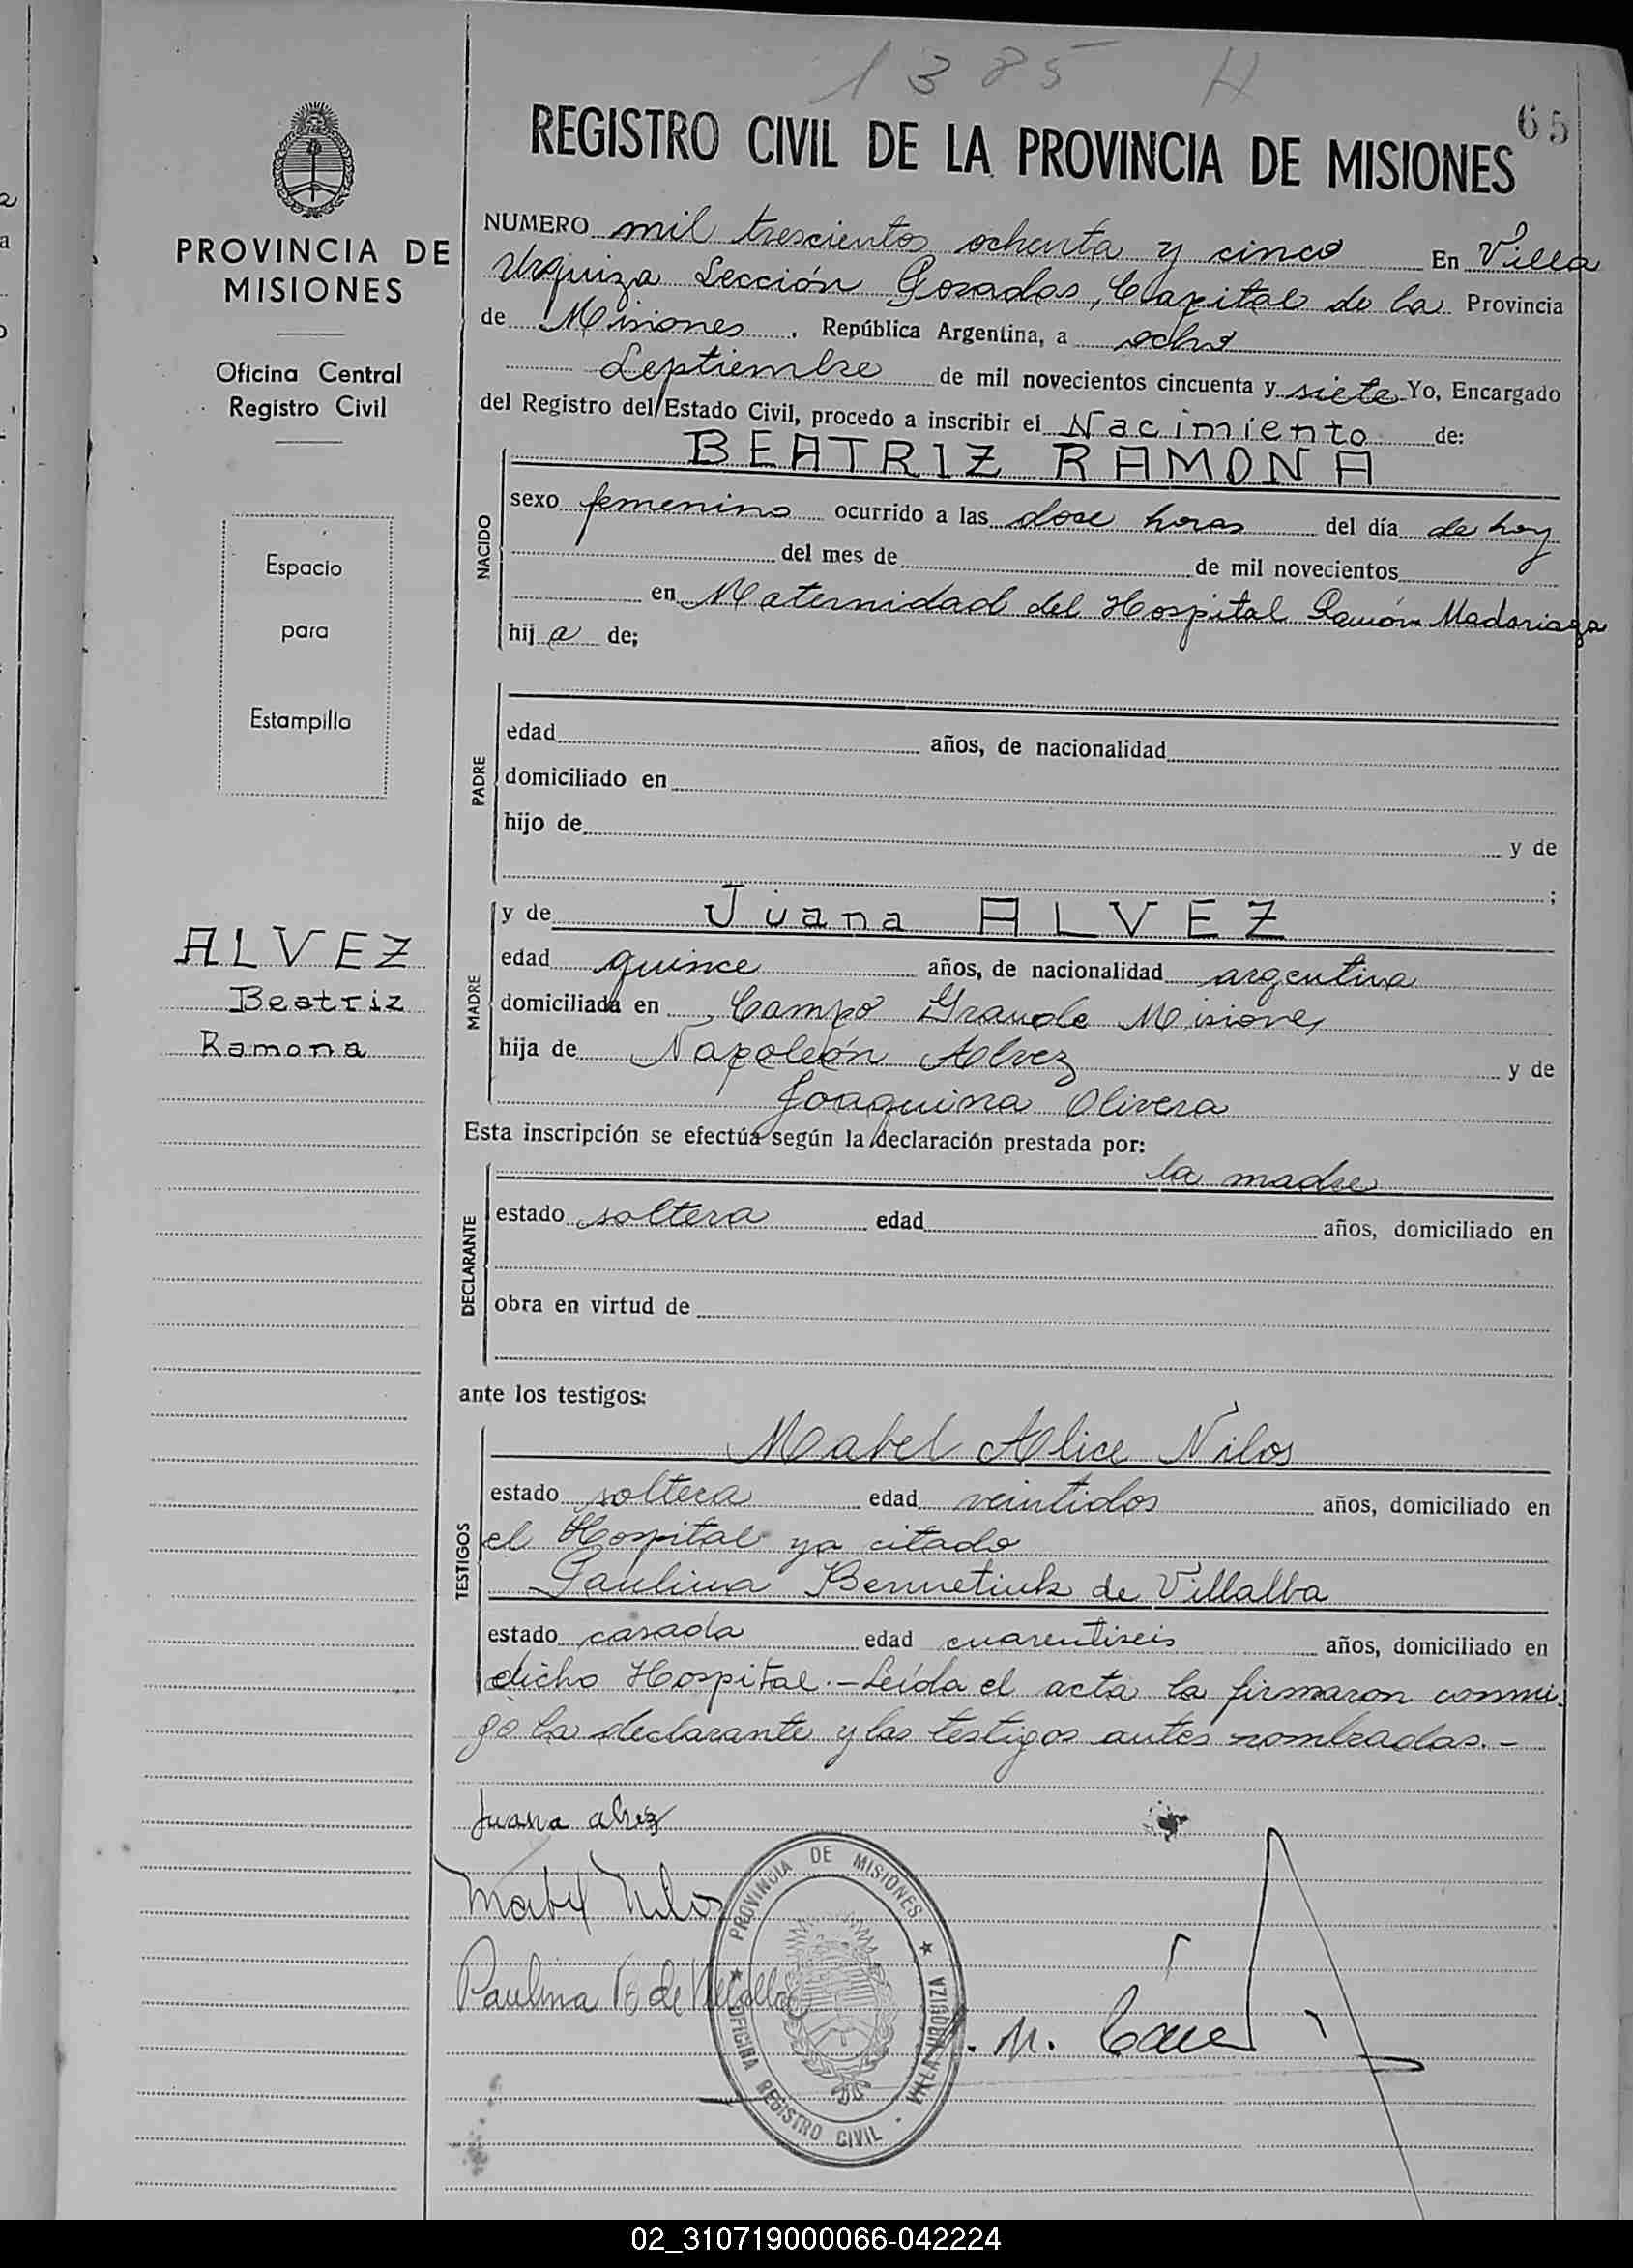 1385 H
65
REGISTRO CIVIL DE LA PROVINCIA DE MISIONES
PROVINCIA DE
MISIONES
Oficina Central
Registro Civil
Espacio
para
Estampilla
ALVEZ
Beatriz
Ramona
NUMERO mil trescientos ochenta y cinco En Villa
Urquiza Sección Posadas, Capital de la Provincia
de Misiones. República Argentina, a ocho
Septiembre de mil novecientos cincuenta y siete Yo, Encargado
del Registro del Estado Civil, procedo a inscribir el Nacimiento de:
BEATRIZ RAMONA
NACIDO
sexo femenino ocurrido a las doce horas del día de hoy
del mes de de mil novecientos
en Maternidad del Hospital Ramón Madariaga
hija de;
PADRE
edad años, de nacionalidad
domiciliado en
hijo de y de
;
MADRE
y de Juana ALVEZ
edad quince años, de nacionalidad argentina
domiciliada en Campo Grande Misiones
hija de Napoleón Alvez y de
Joaquina Olivera
Esta inscripción se efectúa según la declaración prestada por:
la madre
DECLARANTE
estado soltera edad años, domiciliado en
obra en virtud de
ante los testigos:
TESTIGOS
Mabel Alice Nilos
estado soltera edad veintidos años, domiciliado en
el Hospital ya citado
Paulina Bennetiuk de Villalba
estado casada edad cuarentiseis años, domiciliado en
dicho Hospital.- Leída el acta la firmaron conmi-
go la declarante y las testigos antes nombradas.-
Juana alvez
Mabel Nilos
Paulina B de Villalba
PROVINCIA DE MISIONES
OFICINA REGISTRO CIVIL · VILLA URQUIZA
02_310719000066-042224